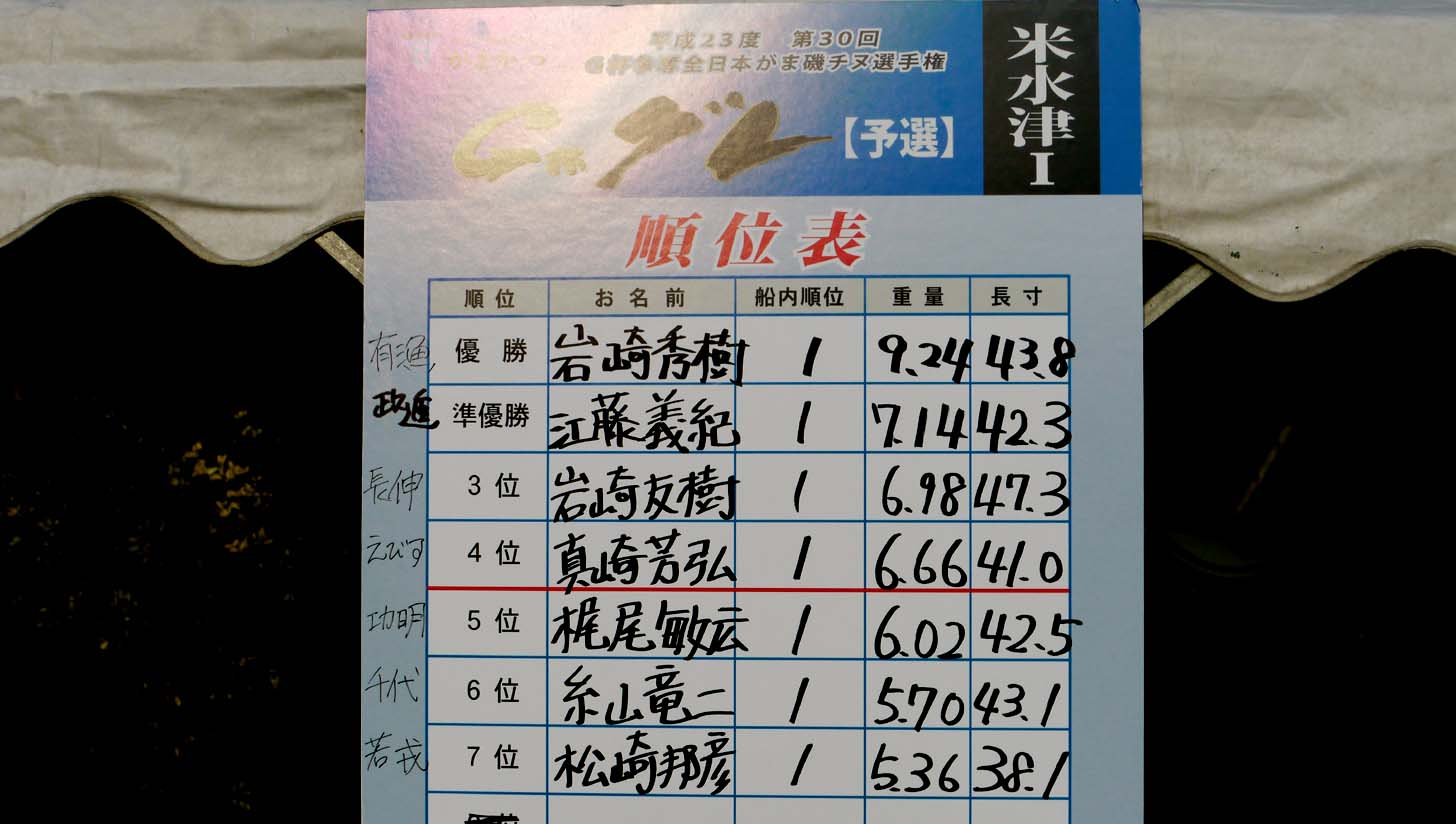 平成23度 第30回
G杯争奪全日本がま磯チヌ選手権
G杯グレ【予選】
米水津I
順位表
順位 お名前 船内順位 重量 長寸
有漁 優勝 岩崎秀樹 1 9.24 43.8
政進 準優勝 江藤義紀 1 7.14 42.3
長伸 3位 岩崎友樹 1 6.98 47.3
えびす 4位 真崎芳弘 1 6.66 41.0
功明 5位 梶尾敏宏 1 6.02 42.5
千代 6位 糸山竜二 1 5.70 43.1
若戎 7位 松崎邦彦 1 5.36 38.1